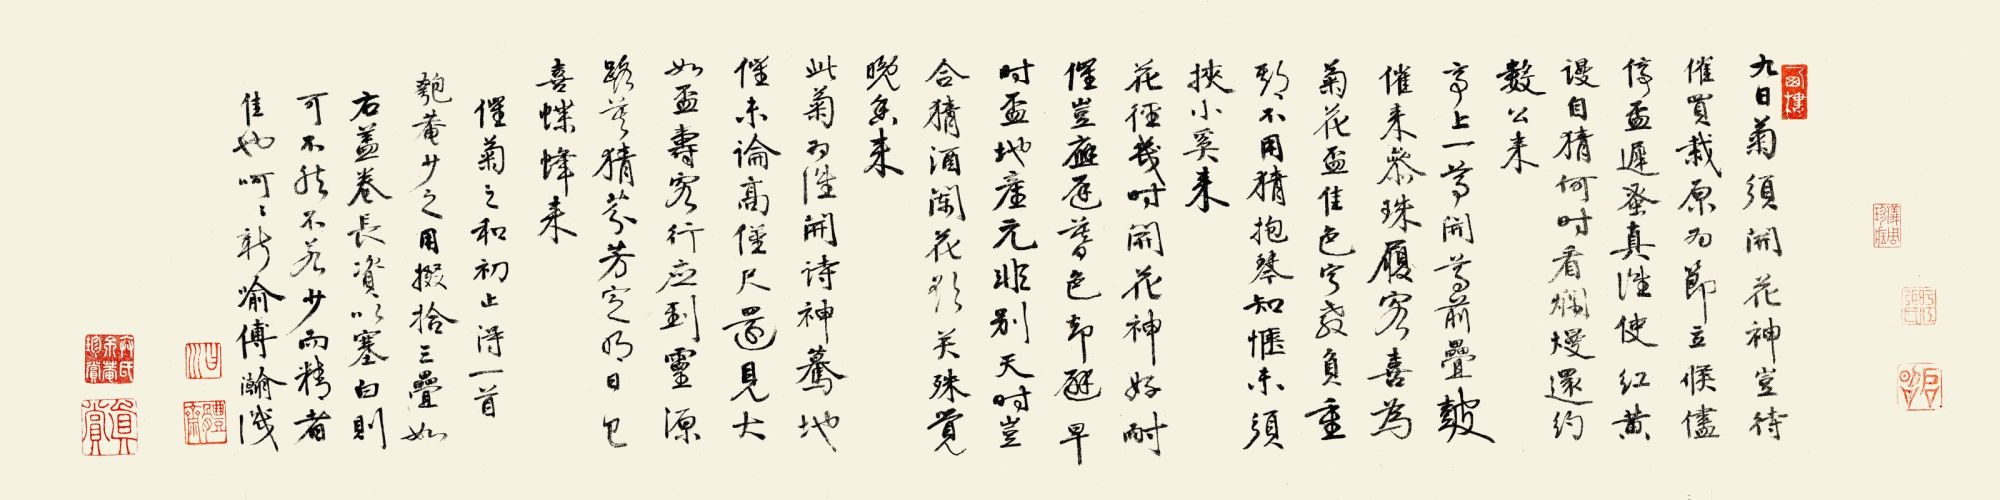 九日菊須開花神豈待
催買栽原為節立候儘
停盃遲蚤真誰使紅黃
謾自猜何時看爛熳還約
數公來
亭上一尊開尊前疊鼓
催來參珠履客喜為
菊花盃佳色寧教負重
不用猜抱琴知愜未須
挾小奚來
花徑幾時開花神好耐
催豈應遲暮色却避早
時盃地產元非別天時豈
合猜酒闌花欲笑殊覺
晚香來
此菊為誰開詩神驀地
催未論高僅尺還見大
如盃壽客行應到靈源
路莫猜芬芳定明日已
喜蝶蜂來
催菊之和初止得一首
匏菴少之用掇拾三疊如
右蓋卷長資以塞白則
可不然不若少而精者
佳也呵呵新喻傅瀚識